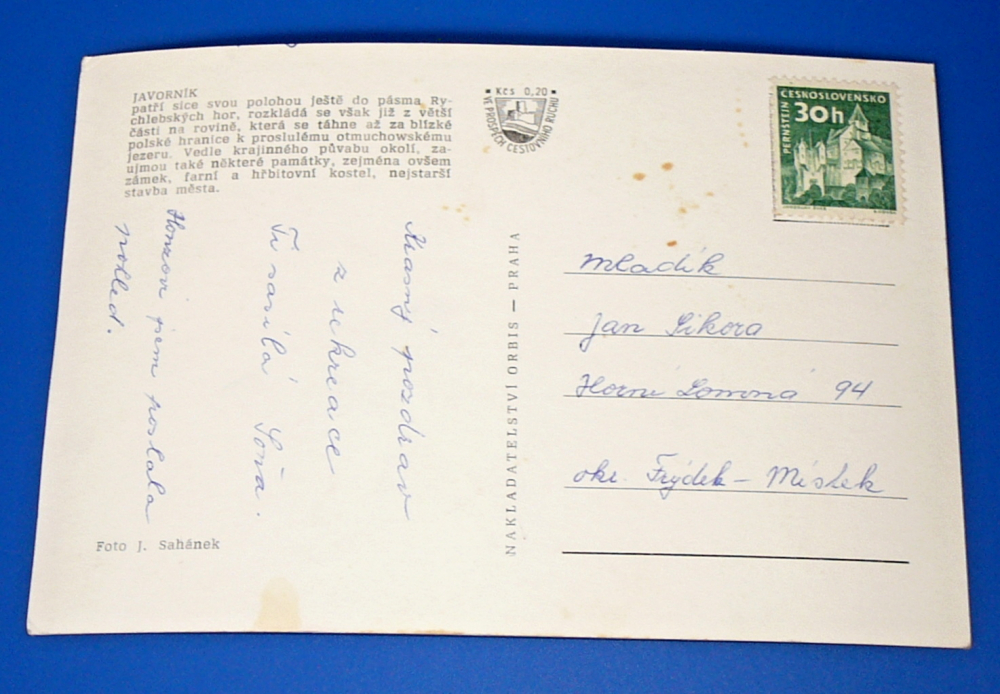 JAVORNÍK
patří sice svou polohou ještě do pásma Ry-
chlebských hor, rozkládá se však již z větší
části na rovině, která se táhne až za blízké
polské hranice k proslulému otmuchowskému
jezeru. Vedle krajinného půvabu okolí, za-
ujmou také některé památky, zejména ovšem
zámek, farní a hřbitovní kostel, nejstarší
stavba města.
Krásný pozdrav
z rekreace
Ti zasílá Soňa.
Honzovi jsem poslala
pohled.
Foto J. Sahánek
Kčs 0,20
VE PROSPĚCH CESTOVNÍHO RUCHU
NAKLADATELSTVÍ ORBIS — PRAHA
ČESKOSLOVENSKO
30h
PERNŠTEJN
Mladík
Jan Sikora
Horní Lomná 94
okr. Frýdek - Místek